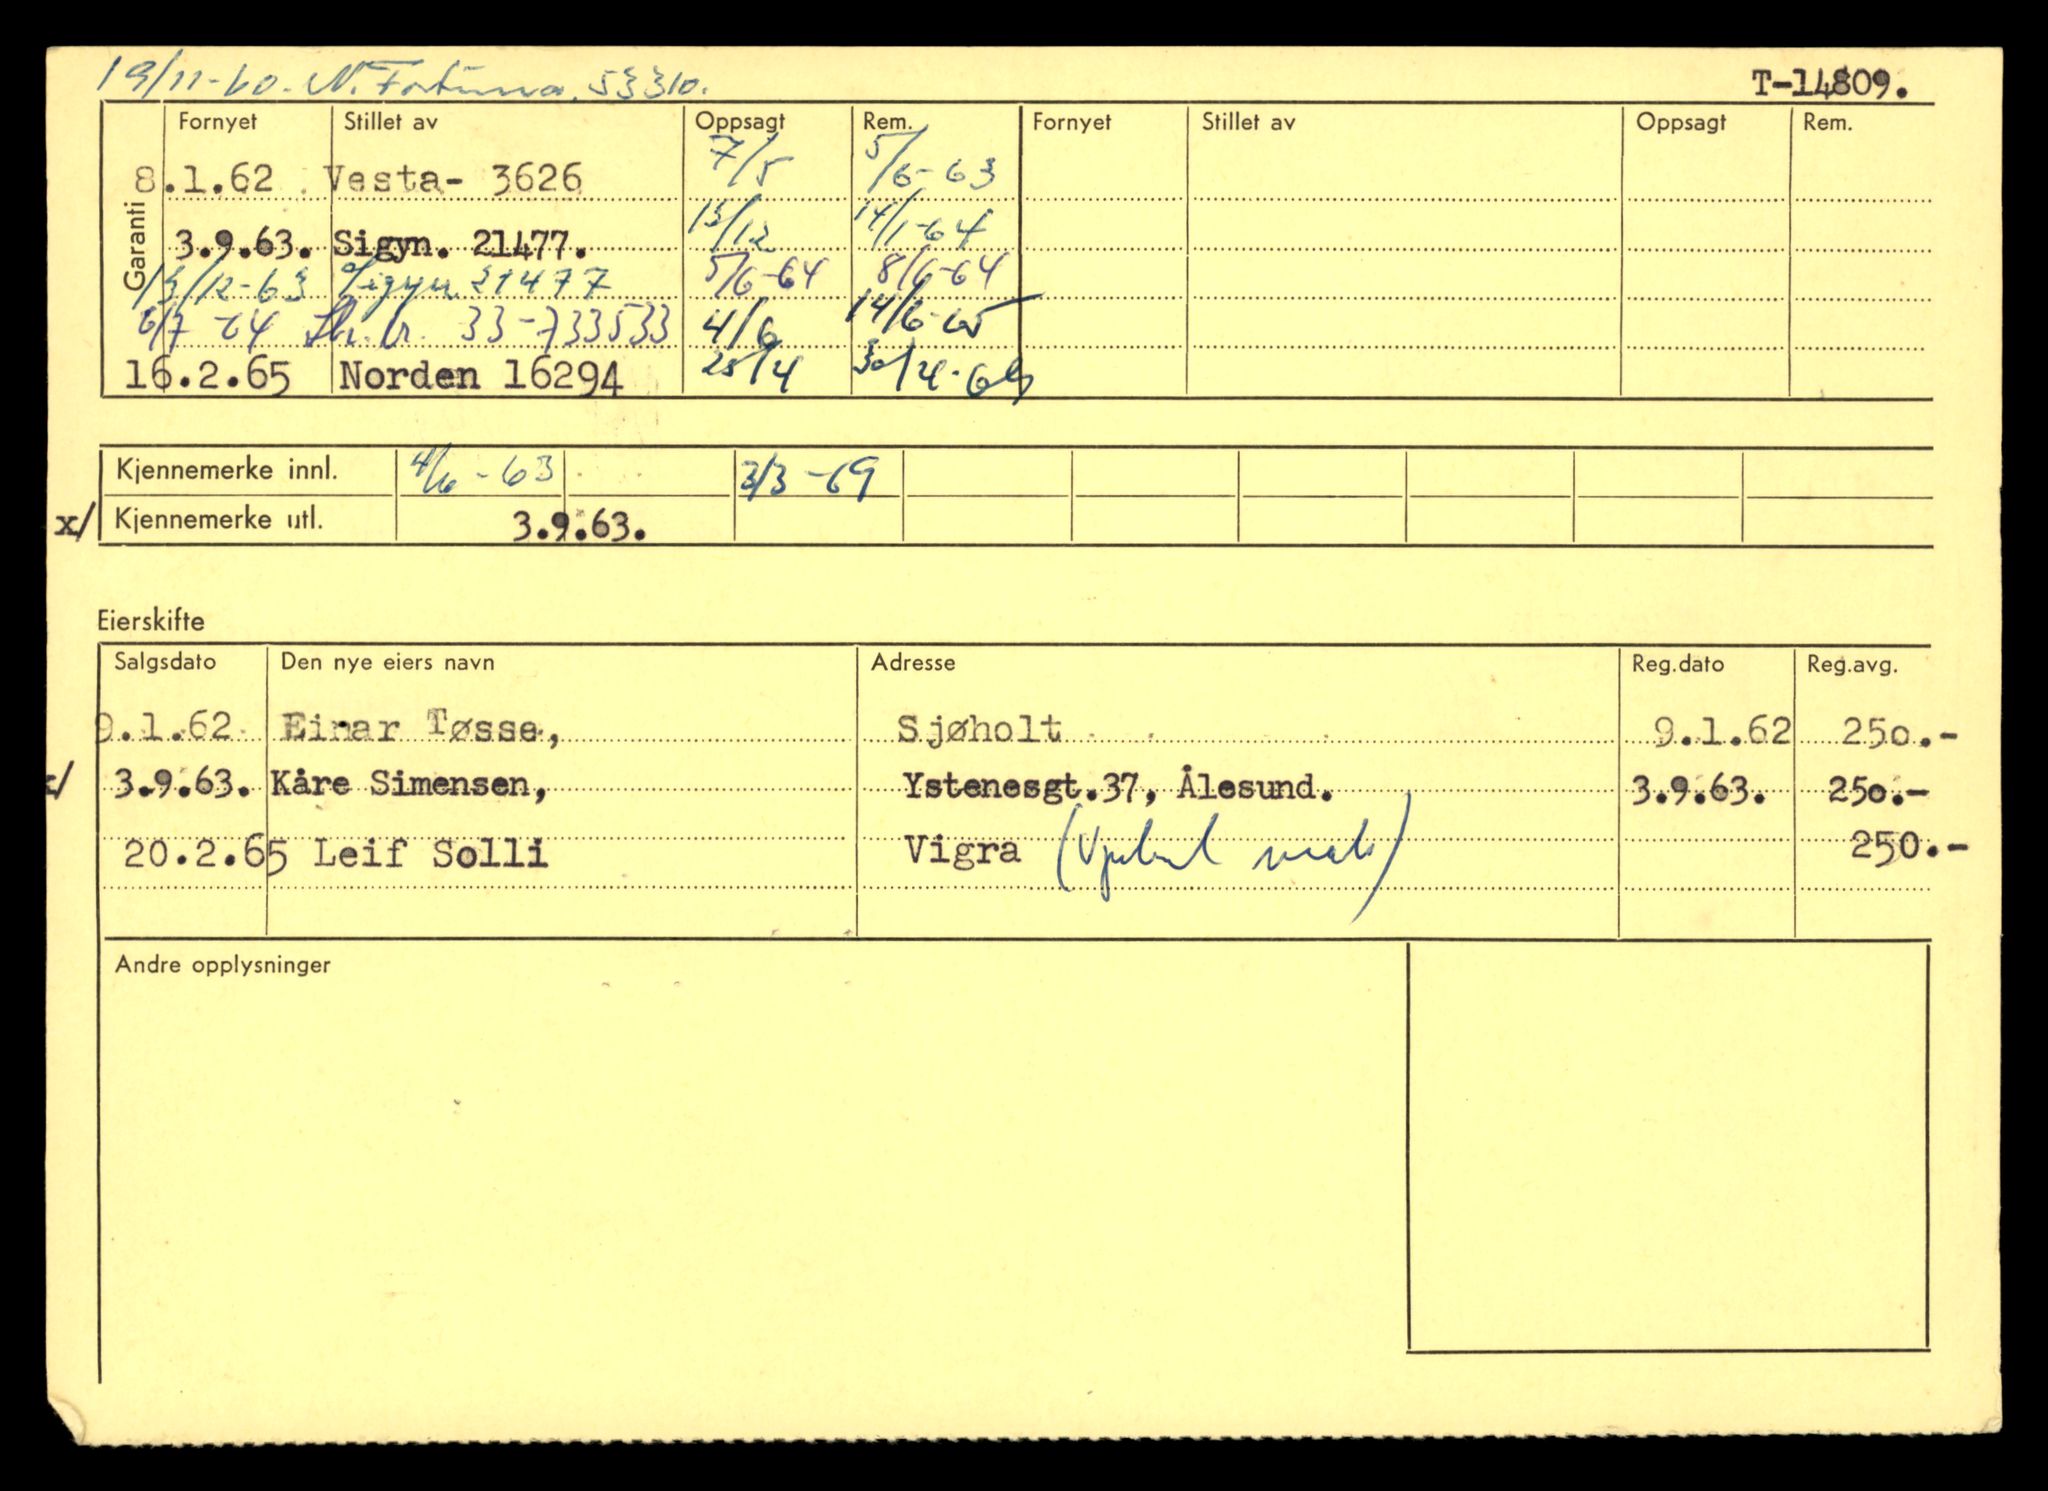 19/11-60. N. Fortuna. 53310.
T-14809.
Garanti
Fornyet Stillet av Oppsagt Rem. Fornyet Stillet av Oppsagt Rem.
8.1.62 Vesta- 3626 7/5 5/6-63
3.9.63. Sigyn. 21477. 13/12 14/1-64
13/12-63 Sigyn 21477 5/6-64 8/6-64
6/7-64 33-733533 4/6 14/6-65
16.2.65 Norden 16294 25/4 30/4-69
Kjennemerke innl. 4/6-63 3/3-69
x/ Kjennemerke utl. 3.9.63.
Eierskifte
Salgsdato Den nye eiers navn Adresse Reg.dato Reg.avg.
9.1.62 Einar Tøsse, Sjøholt 9.1.62 250.-
x/ 3.9.63. Kåre Simensen, Ystenesgt.37, Ålesund. 3.9.63. 250.-
20.2.65 Leif Solli Vigra 250.-
Andre opplysninger